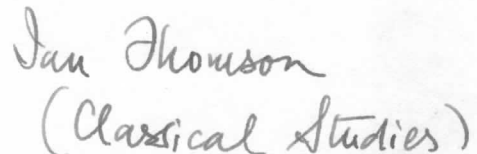 Ian Thomson
(Classical Studies)